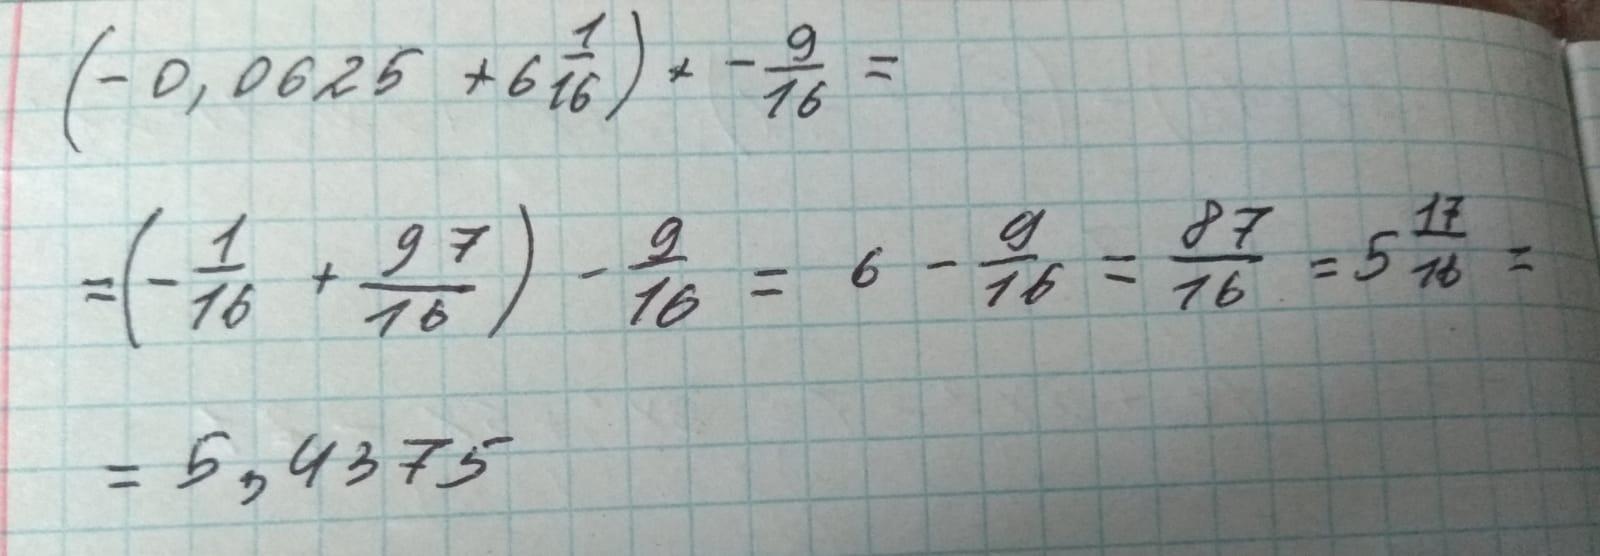 (-0,0625 + 6 1/16) + - 9/16 =
= (- 1/16 + 97/16) - 9/16 = 6 - 9/16 = 87/16 = 5 17/16 =
= 5,4375